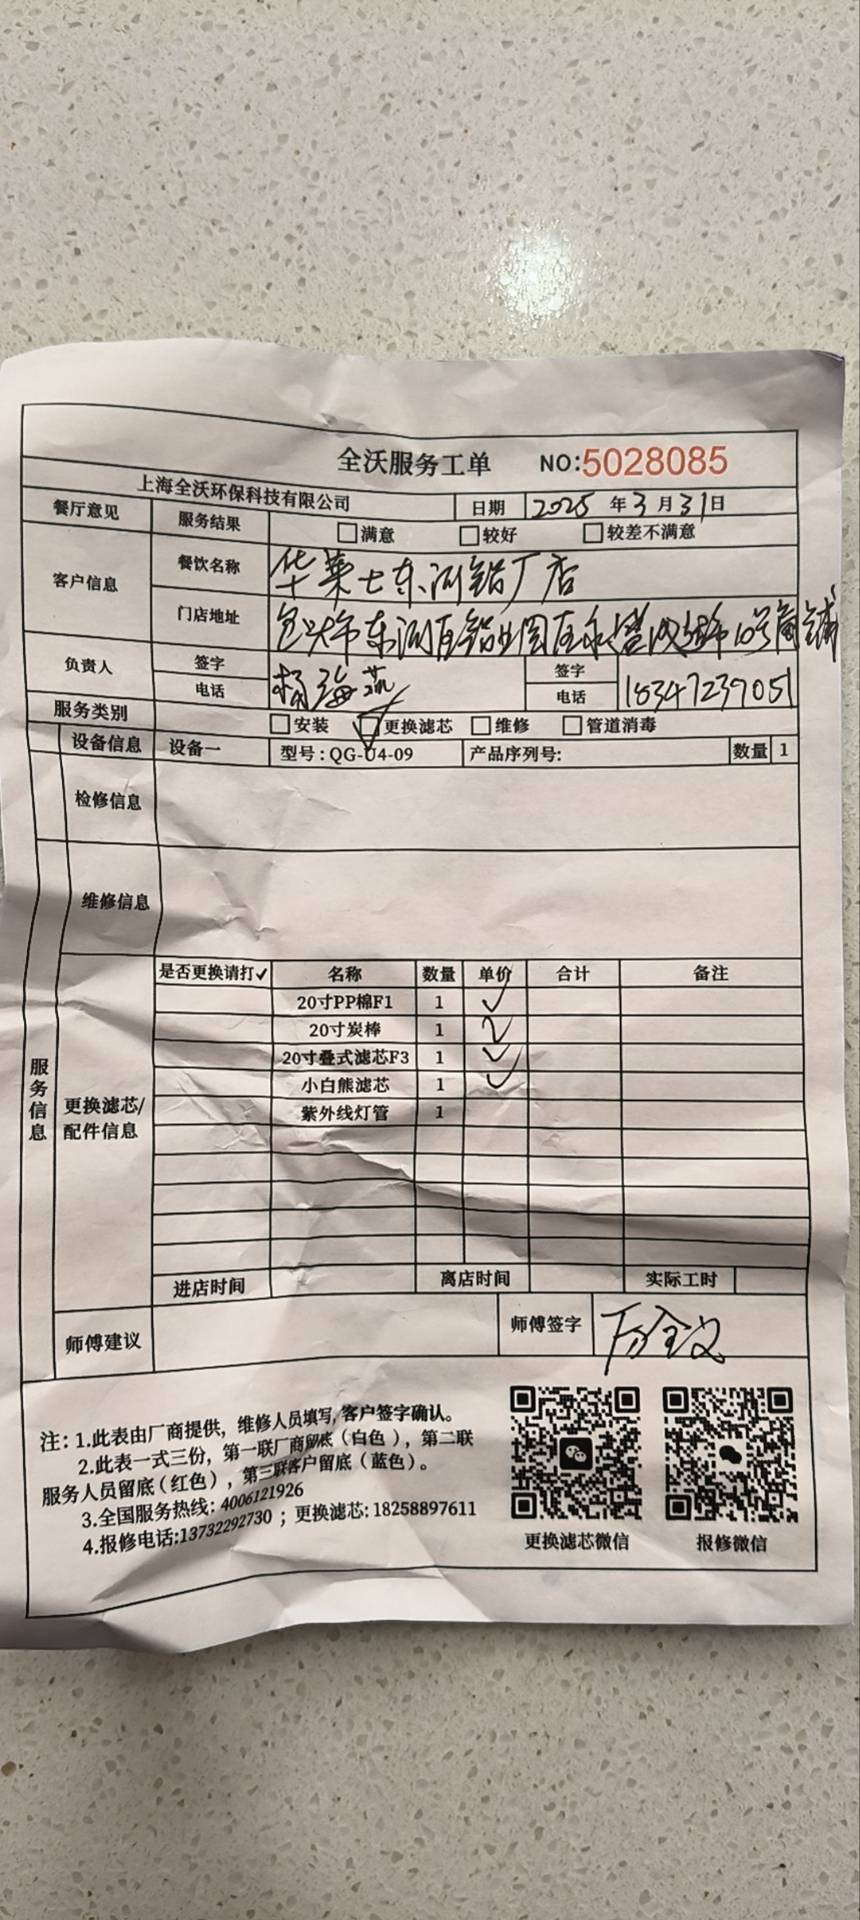 全沃服务工单 NO:5028085
上海全沃环保科技有限公司 日期 2025 年 3 月 31 日
餐厅意见 服务结果 满意 较好 较差不满意
客户信息 餐饮名称 华莱士东河铝厂店
门店地址 包头市东河区铝业园区 10号商铺
负责人 签字 杨海燕 签字
电话 电话 18347239051
服务类别 安装 更换滤芯 维修 管道消毒
设备信息 设备一 型号:QG-U4-09 产品序列号: 数量 1
检修信息
维修信息
服务信息
更换滤芯/
配件信息
是否更换请打✓ 名称 数量 单价 合计 备注
20寸PP棉F1 1 ✓
20寸炭棒 1 ✓
20寸叠式滤芯F3 1 ✓
小白熊滤芯 1 ✓
紫外线灯管 1
进店时间 离店时间 实际工时
师傅建议 师傅签字
注: 1.此表由厂商提供，维修人员填写,客户签字确认。
2.此表一式三份，第一联厂商留底（白色），第二联
服务人员留底（红色），第三联客户留底（蓝色）。
3.全国服务热线: 4006121926
4.报修电话:13732292730 ；更换滤芯: 18258897611
更换滤芯微信 报修微信